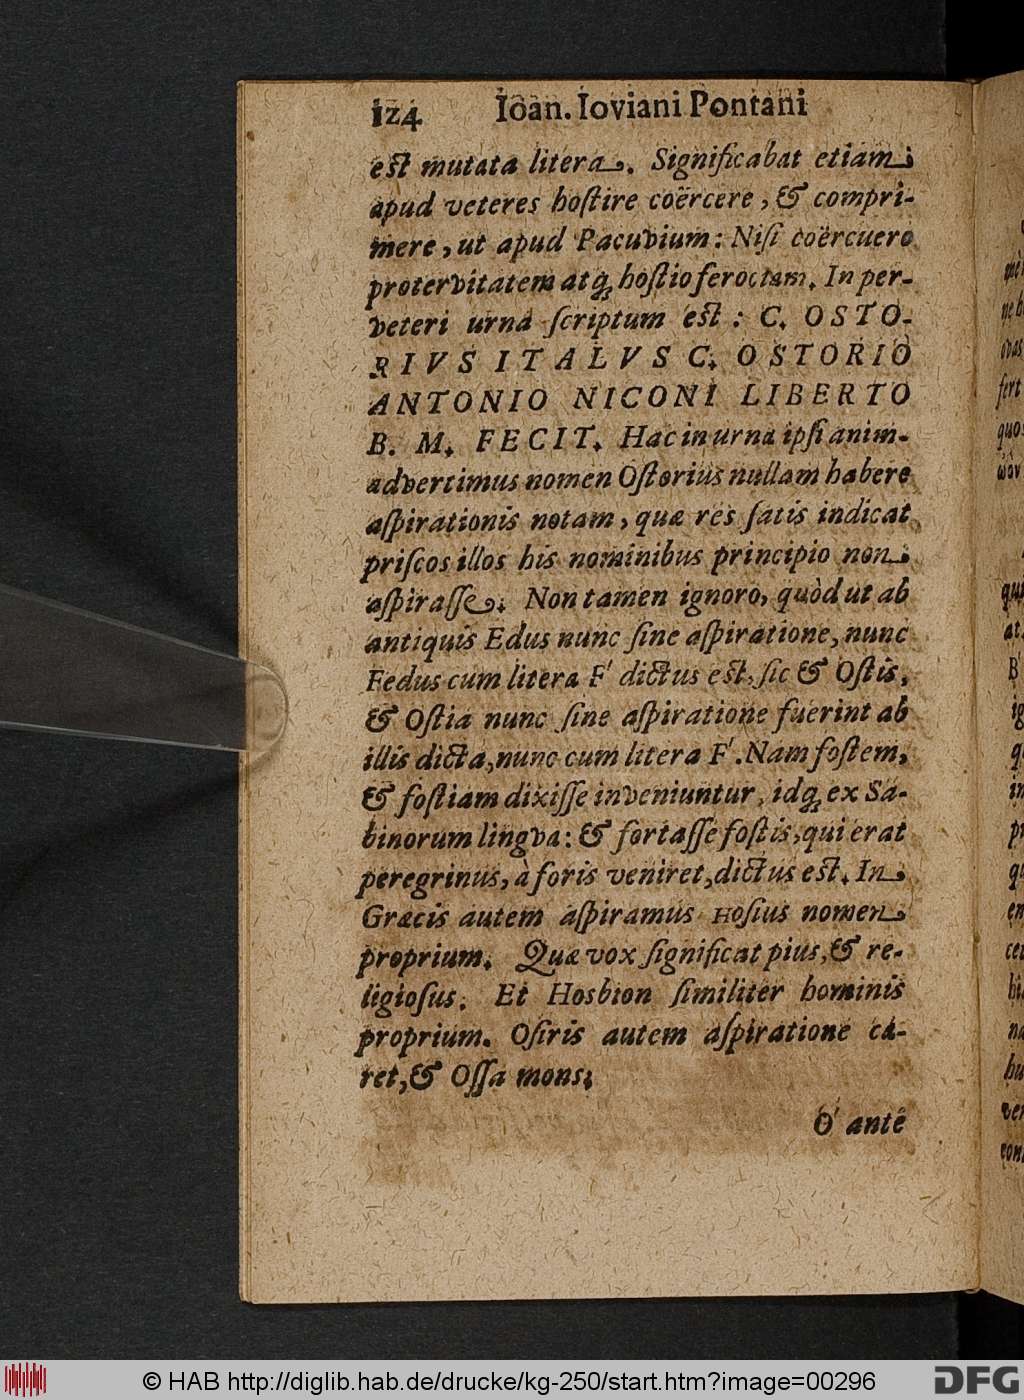 124 Ioan. Ioviani Pontani
est mutata litera. Significabat etiam
apud veteres hostire coërcere, & compri-
mere, ut apud Pacuvium: Nisi coërcuero
protervitatem atq; hostio ferociam. In per-
veteri urna scriptum est: C. OSTO-
RIVS ITALVS C. OSTORIO
ANTONIO NICONI LIBERTO
B. M. FECIT. Hac in urna ipsi anim-
advertimus nomen Ostorius nullam habere
aspirationis notam, quæ res satis indicat
priscos illos his nominibus principio non
aspirasse. Non tamen ignoro, quòd ut ab
antiquis Edus nunc sine aspiratione, nunc
Fedus cum litera F dictus est, sic & Ostis,
& Ostia nunc sine aspiratione fuerint ab
illis dicta, nunc cum litera F. Nam fostem,
& fostiam dixisse inveniuntur, idq; ex Sa-
binorum lingva: & fortasse fostis, qui erat
peregrinus, à foris veniret, dictus est. In
Græcis autem aspiramus Hosius nomen
proprium. Quæ vox significat pius, & re-
ligiosus. Et Hosbion similiter hominis
proprium. Osiris autem aspiratione ca-
ret, & Ossa mons.
O antè
© HAB http://diglib.hab.de/drucke/kg-250/start.htm?image=00296
DFG